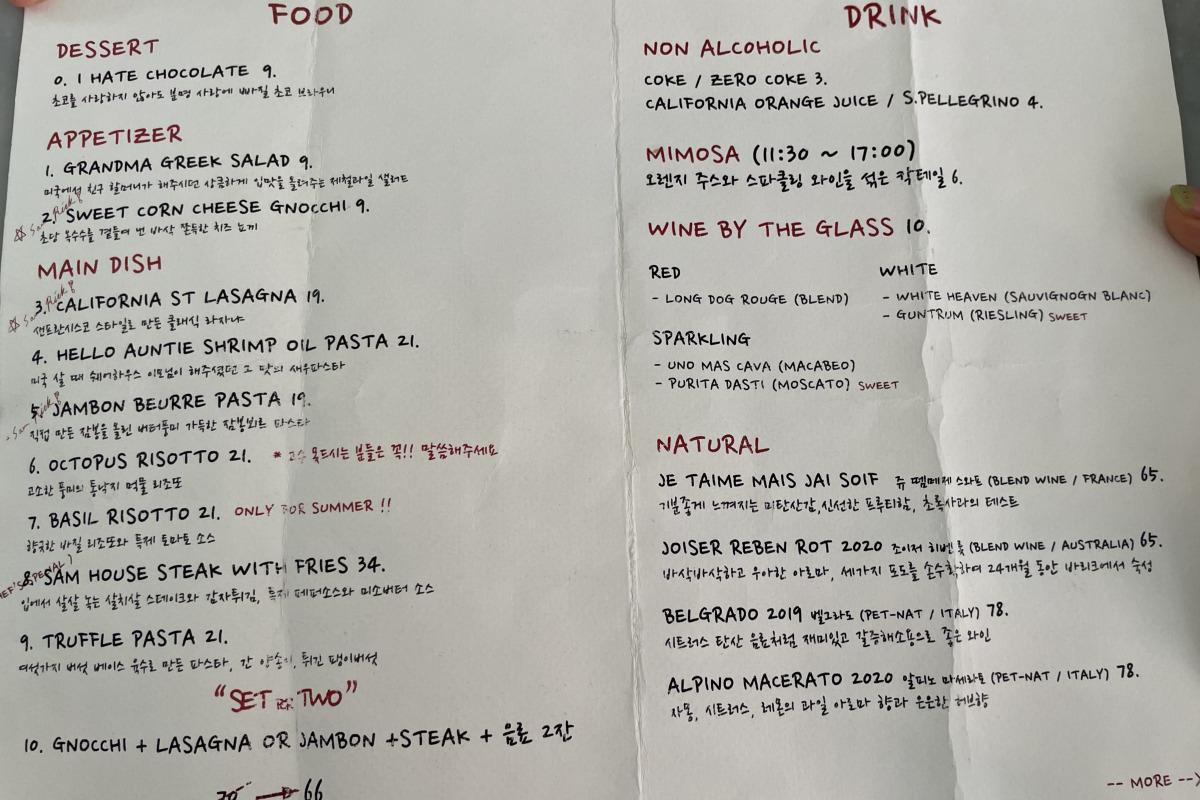 FOOD
DESSERT
0. I HATE CHOCOLATE 9.
초코를 사랑하지 않아도 분명 사랑에 빠질 초코 브라우니
APPETIZER
1. GRANDMA GREEK SALAD 9.
미국에서 친구 할머니가 해주시던 상큼하게 입맛을 돌려주는 제철과일 샐러드
2. SWEET CORN CHEESE GNOCCHI 9.
초당 옥수수를 곁들여 낸 바삭 쫀득한 치즈 뇨끼
MAIN DISH
3. CALIFORNIA ST LASAGNA 19.
샌프란시스코 스타일로 만든 클래식 라자냐
4. HELLO AUNTIE SHRIMP OIL PASTA 21.
미국 살 때 쉐어하우스 이모님이 해주셨던 그 맛의 새우파스타
5. JAMBON BEURRE PASTA 19.
직접 만든 잠봉을 올린 버터풍미 가득한 잠봉뵈르 파스타
6. OCTOPUS RISOTTO 21. * 고수 못드시는 분들은 꼭!! 말씀해주세요
고소한 풍미의 통낙지 먹물 리조또
7. BASIL RISOTTO 21. ONLY FOR SUMMER !!
향긋한 바질 리조또와 특제 토마토 소스
8. SAM HOUSE STEAK WITH FRIES 34.
입에서 살살 녹는 살치살 스테이크와 감자튀김, 특제 페퍼소스와 미소버터 소스
9. TRUFFLE PASTA 21.
여섯가지 버섯 베이스 육수로 만든 파스타, 간 양송이, 튀긴 팽이버섯
"SET FOR TWO"
10. GNOCCHI + LASAGNA OR JAMBON +STEAK + 음료 2잔
66
DRINK
NON ALCOHOLIC
COKE / ZERO COKE 3.
CALIFORNIA ORANGE JUICE / S.PELLEGRINO 4.
MIMOSA (11:30 ~ 17:00)
오렌지 주스와 스파클링 와인을 섞은 칵테일 6.
WINE BY THE GLASS 10.
RED
- LONG DOG ROUGE (BLEND)
WHITE
- WHITE HEAVEN (SAUVIGNOGN BLANC)
- GUNTRUM (RIESLING) SWEET
SPARKLING
- UNO MAS CAVA (MACABEO)
- PURITA DASTI (MOSCATO) SWEET
NATURAL
JE TAIME MAIS JAI SOIF 쥬 뗌메제스와프 (BLEND WINE / FRANCE) 65.
기분좋게 느껴지는 미탄산감,신선한 프루티함, 초록사과의 테스트
JOISER REBEN ROT 2020 조이저 히벤 롯 (BLEND WINE / AUSTRALIA) 65.
바삭바삭하고 우아한 아로마, 세가지 포도를 손수확하여 24개월 동안 바리크에서 숙성
BELGRADO 2019 벨그라도 (PET-NAT / ITALY) 78.
시트러스 탄산 음료처럼 재미있고 갈증해소용으로 좋은 와인
ALPINO MACERATO 2020 알피노 마세라토 (PET-NAT / ITALY) 78.
자몽, 시트러스, 레몬의 과일 아로마 향과 은은한 허브향
-- MORE --